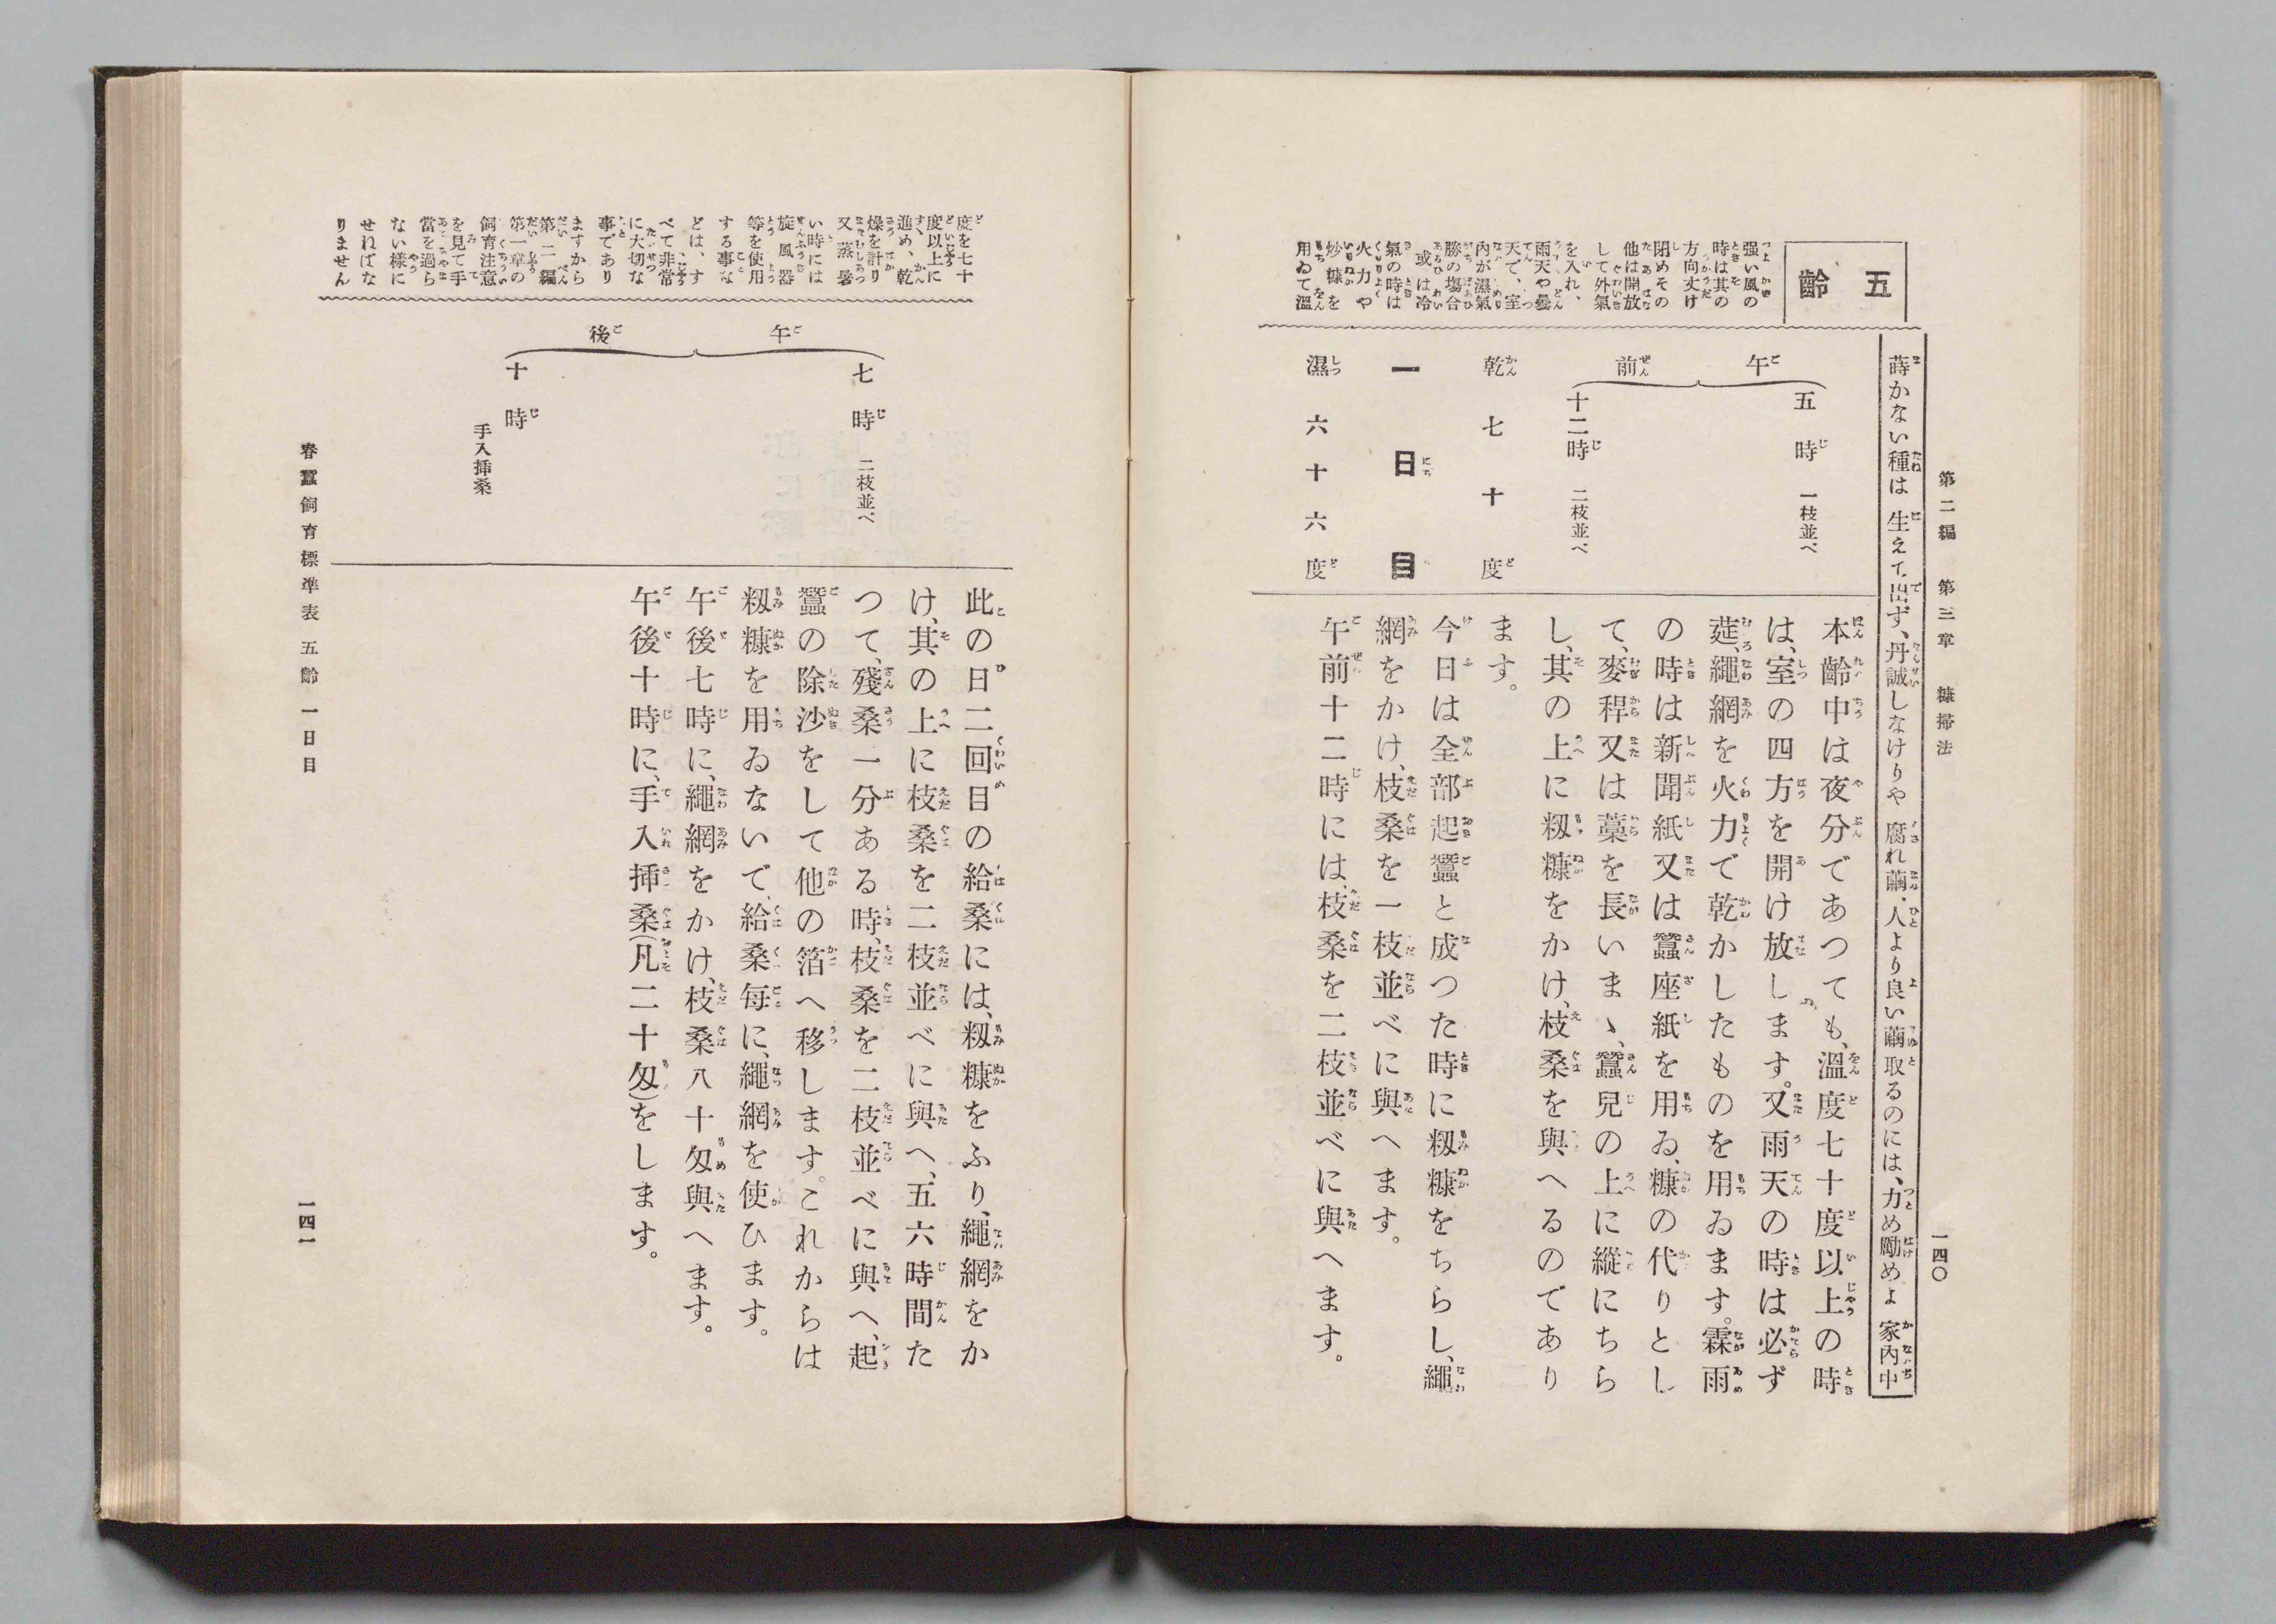 第二編　第三章　糠掃法
一四〇
蒔かない種は生えて出ず、丹誠しなけりや腐れ繭・人より良い繭取るのには、力め勵めよ家內中
五齡
强い風の
時は其の
方向丈け
閉めその
他は開放
して外氣
を入れ、
雨天や曇
天で、室
內が濕氣
勝の場合
或は冷
氣の時は
火力や
炒糠を
用ゐて溫
午前
五時　一枝並べ
十二時　二枝並べ
乾　七十度
一日目
濕　六十六度
本齡中は夜分であつても、溫度七十度以上の時
は、室の四方を開け放します。又雨天の時は必ず
莚、繩網を火力で乾かしたものを用ゐます。霖雨
の時は新聞紙又は蠶座紙を用ゐ、糠の代りとし
て、麥稈又は藁を長いまゝ、蠶兒の上に縱にちら
し、其の上に籾糠をかけ、枝桑を與へるのであり
ます。
今日は全部起蠶と成つた時に籾糠をちらし、繩
網をかけ、枝桑を一枝並べに與へます。
午前十二時には、枝桑を二枝並べに與へます。
度を七十
度以上に
進め、乾
燥を計り
又蒸暑
い時には
旋風器
等を使用
する事な
どは、す
べて非常
に大切な
事であり
ますから
第二編
第一章の
飼育注意
を見て手
當を過ら
ない樣に
せねばな
りません
午後
七時　二枝並べ
十時
手入揷桑
此の日二回目の給桑には、籾糠をふり、繩網をか
け、其の上に枝桑を二枝並べに與へ、五六時間た
つて、殘桑一分ある時、枝桑を二枝並べに與へ、起
蠶の除沙をして他の箔へ移します。これからは
籾糠を用ゐないで、給桑每に、繩網を使ひます。
午後七時に、繩網をかけ、枝桑八十匁與へます。
午後十時に、手入揷桑(凡二十匁)をします。
春蠶飼育標準表　五齡　一日目
一四一